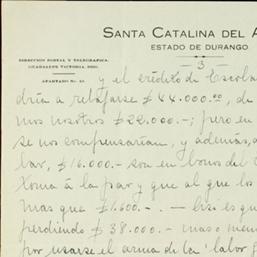 SANTA CATALINA DEL A
ESTADO DE DURANGO
DIRECCION POSTAL Y TELEGRAFICA.
GUADALUPE VICTORIA, DGO.
APARTADO No.
3
y el crédito de Escoba
dría a rebajarse $44.000.00, de
mos nosotros $22.000.-; pero en
se nos compensarían, y además, d
bar, $16.000.- son en bonos del
toma á la par y que al que los
mas que $1.600.-. - Así es qu
perdiendo $38.000.- mas o men
por usarse el arma de la "labor